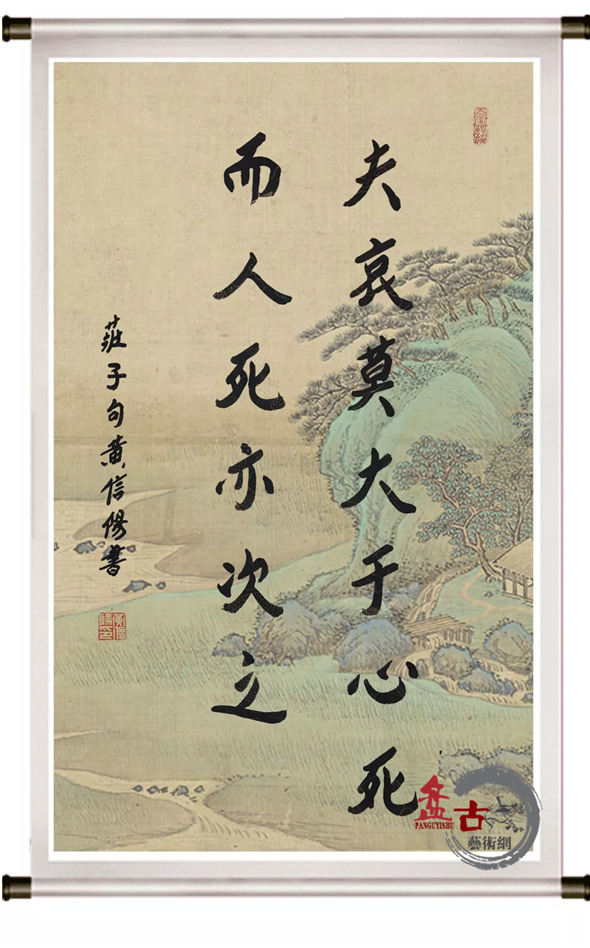 夫哀莫大于心死
而人死亦次之
莊子句黄信陽書
盘古
PANGUYISHU
藝術網